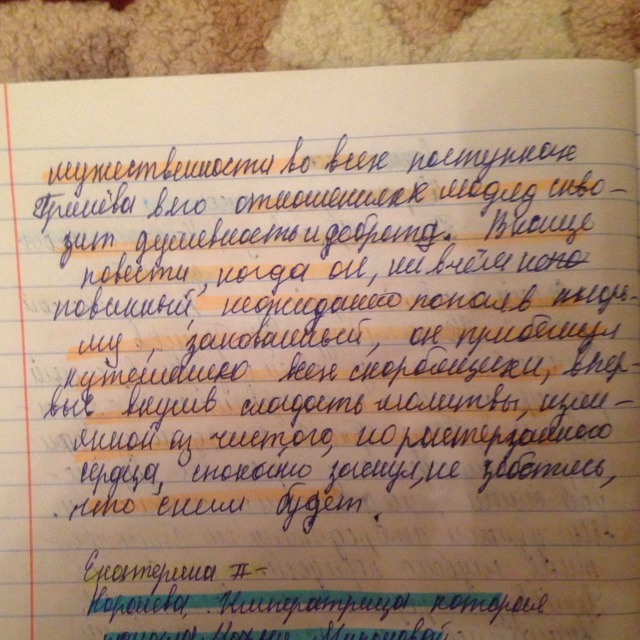 мужественности во всех поступках
Гринёва в его отношениях к людям скво-
зит душевность и доброта. В конце
повести, когда он, ни в чём не
повинный, неожиданно попал в тюрь-
му, закованный, он прибегнул
к утешению всех скорбящих, впер-
вые вкусив сладость молитвы, изли-
янной из чистого, но растерзанного
сердца, спокойно заснул, не заботясь,
что с ним будет.
Екатерина II-
Королева. Императрица которая